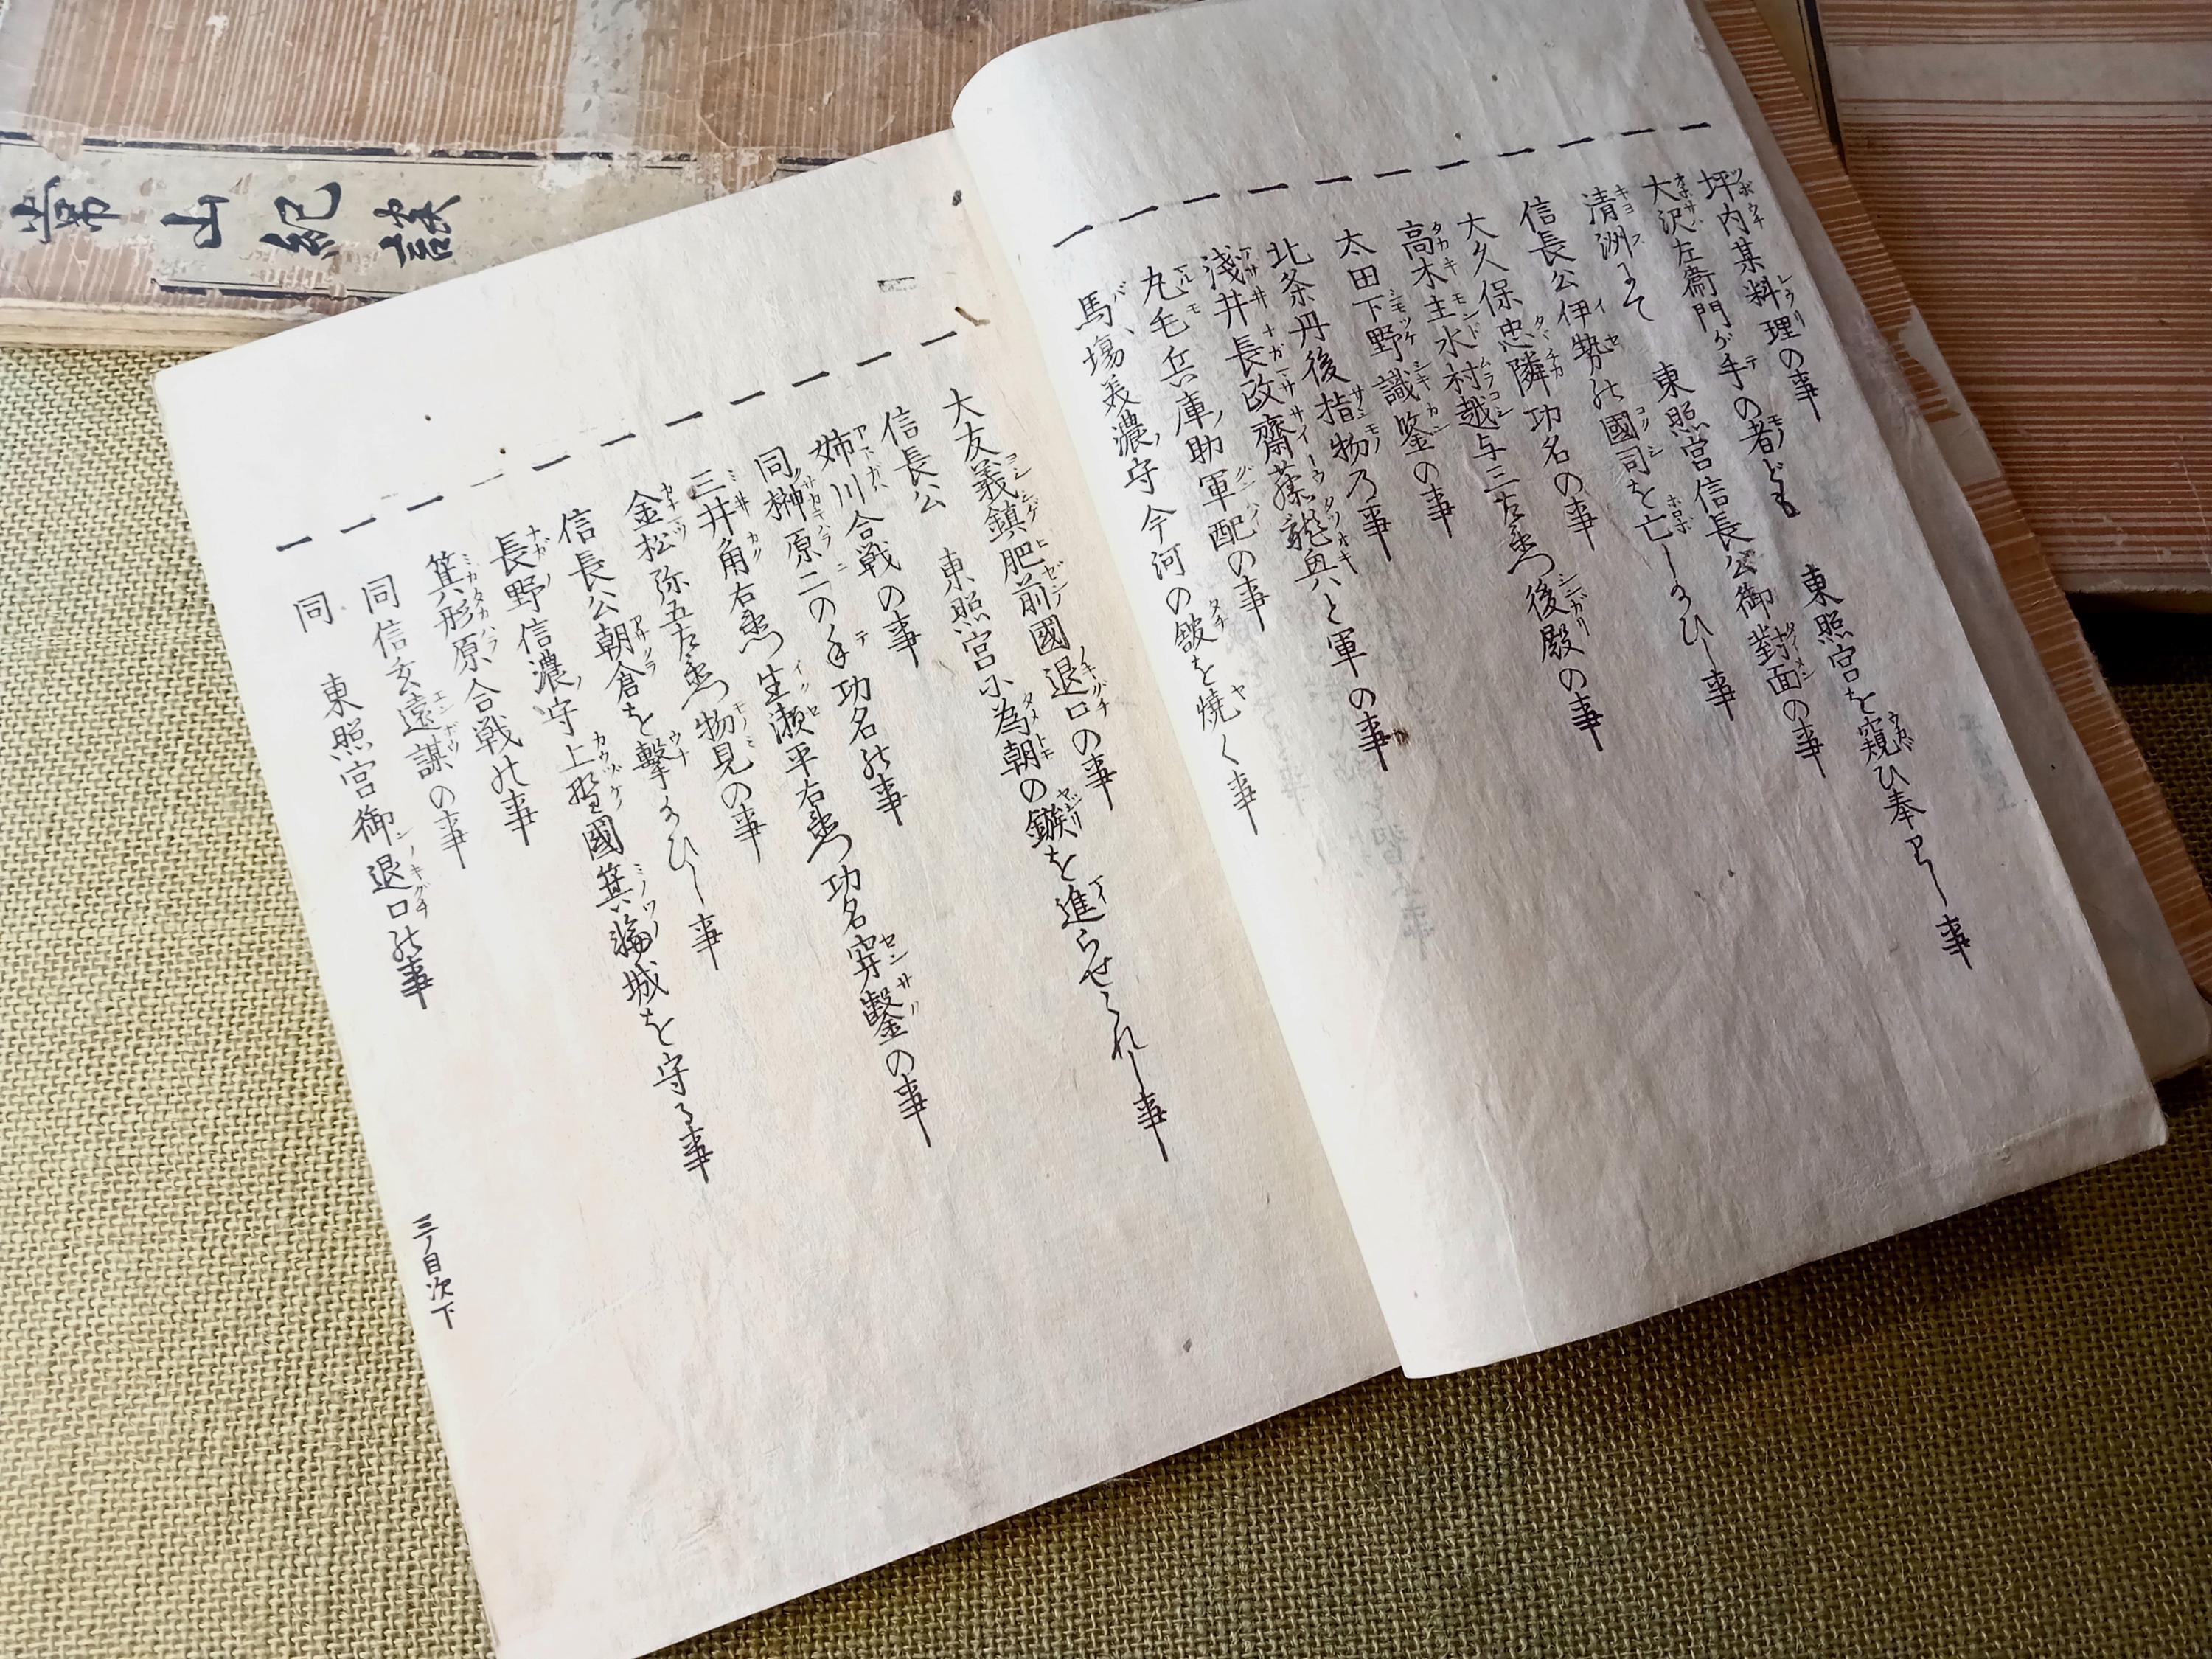 常山紀談
一 坪内某料理の事
一 大沢左衞門が手の者ども 東照宮を窺ひ奉りし事
一 清洲にて 東照宮信長公御對面の事
一 信長公伊勢の國司を亡し給ひし事
一 大久保忠隣功名の事
一 高木主水村越与三左衛門後殿の事
一 太田下野識鑒の事
一 北条丹後指物乃事
一 淺井長政齋藤龍興と軍の事
一 丸毛兵庫助軍配の事
一 馬場美濃守今河の舘を焼く事
一 大友義鎮肥前國退口の事
一 信長公 東照宮に為朝の鏃を進らせられし事
一 姉川合戦の事
一 同榊原二の手功名の事
一 三井角右衛門生瀬平右衛門功名穿鑿の事
一 金松弥五左衛門物見の事
一 信長公朝倉を撃給ひし事
一 長野信濃守上野國箕輪城を守る事
一 箕形原合戦の事
一 同信玄遠謀の事
一 同 東照宮御退口の事
三ノ目次下